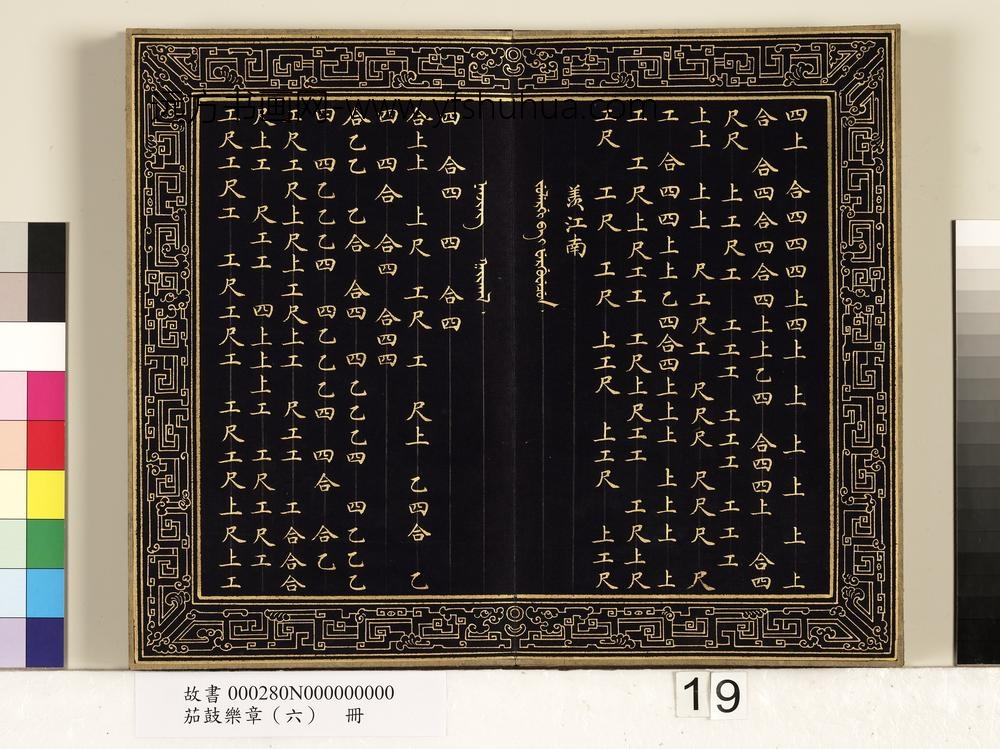 四上 合四四四上四上 上 上 上 上 上
合 合四合四合四上上乙四 合四四上 合四
尺尺 上工尺工 工工工 工工工 工工工
上上 上上 尺工尺工 尺尺尺 尺尺尺 尺
工 合四四上上乙四合四上上上 上上上 上
工 工尺上尺工工 工尺上尺工工 工尺上尺
工尺 工尺 工尺 上工尺 上工尺 上工尺
羨江南
四 合四 四 合四
合上上 上尺 工尺 工 尺上 乙四合 乙
四 四合 合四 合四四
合乙乙 乙合 合四 四乙乙乙四 四乙乙乙
四 四乙乙乙四 四乙乙乙四 四合 合乙
工尺工尺上尺上工尺上工 尺工工 工合合合
尺上工 尺工工 四上上上工 工尺工尺工
工尺工尺工 工尺工尺工 工尺工尺上尺上工
故書 000280N000000000
茄鼓樂章（六） 冊
19